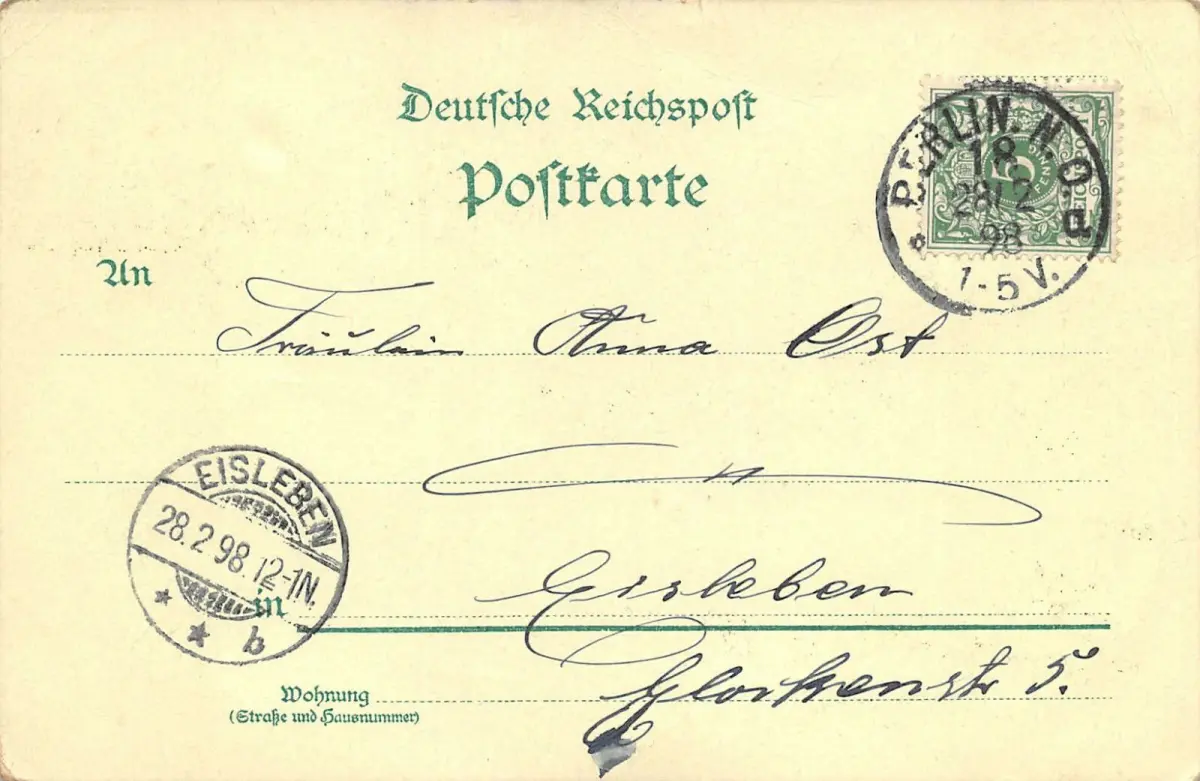 Deutsche Reichspost
Postkarte
BERLIN. N.O.
18
28/2
98
1-5V.
5
PFENNIG
An
Fräulein Anna Ost
EISLEBEN
28.2 98.12-1N.
b
in
Eisleben
Wohnung
(Straße und Hausnummer)
Glockenstr 5.